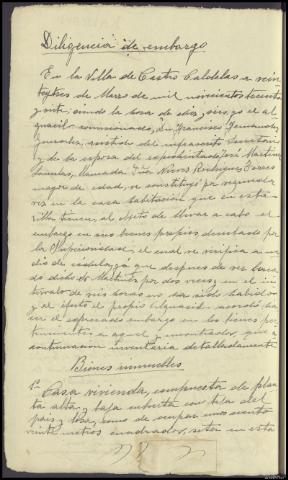 Diligencia de embargo
En la Villa de Castro Caldelas a vein
titres de Marzo de mil novecientos treinta
y siete siendo la hora de diez, yo el al
guacil comisionado, Don Francisco Fernandez
Gonzalez, asistido del infrascrito Secretario
y de la esposa del expedientado José Martinez
llamada Dña Nieves Rodriguez
mayor de edad, se constituyó por segunda
vez en la casa habitación que en esta
villa tienen, al objeto de llevar a cabo el
embargo en sus bienes propios decretado por
la Superioridad, el cual se verifica a me
dio de cédula, ya que despues de ser busca
do dicho Sr Martinez por dos veces, y en el in
tervalo de seis horas no ha sido habido
y al efecto el propio acordó, ha
cer el expresado embargo en los bienes per
tenecientes a aquel y encontrados, que a
continuación inventaria detalladamente
Bienes inmuebles
1º Casa vivienda, compuesta de plan
ta alta y baja cubierta con teja del
pais y losa, como de ocupar unos ciento
veinte metros cuadrados, sita en esta